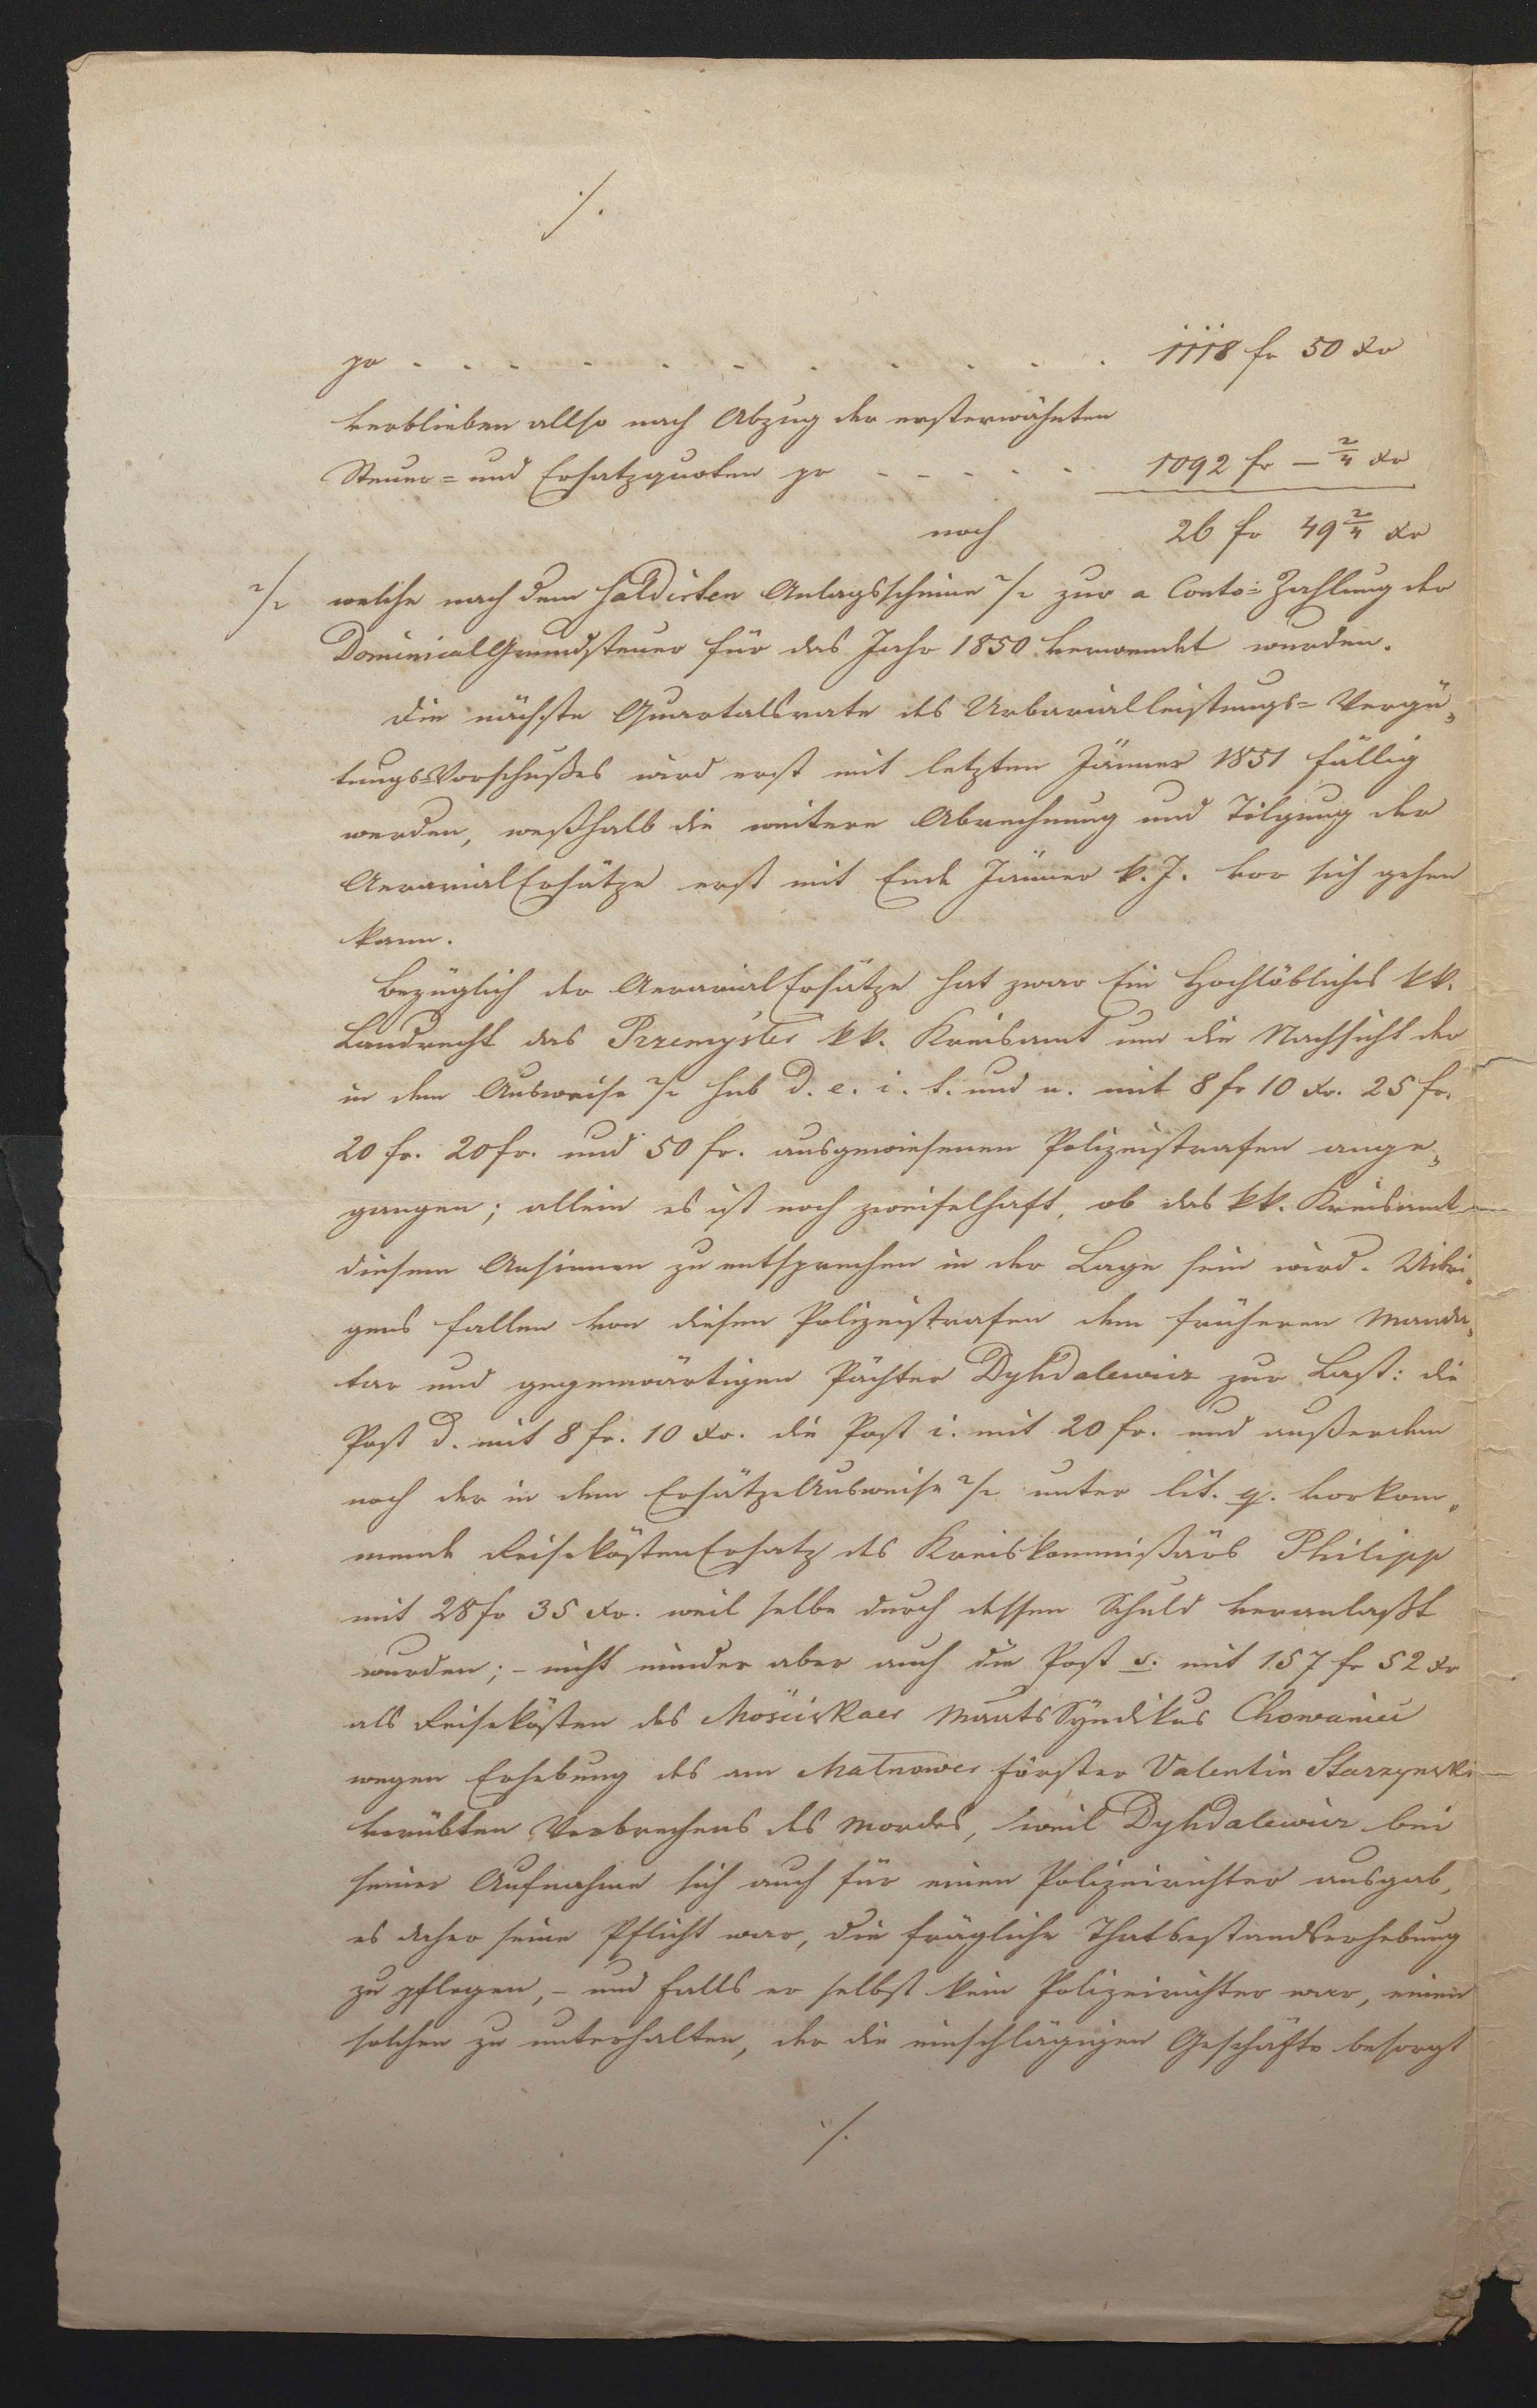 ./.
pr . . . . . . . . . . 1118 fr 50 xr
verblieben allso nach Abzug der ersterwähnten
Steuer= und Ersatzquoten pr . . . . . 1092 fr – 2/4 xr
noch 26 fr 49 2/4 xr
2/. welche nach dem saldirten Anlagsscheine 2/. zur a Conto=Zahlung der
DominicalGrundsteuer für das Jahr 1850 verwendet wurden.
Die nächste Quartalsrate des Urbarialleistungs=Vergü„
tungs=Vorschußes wird erst mit letzten Jänner 1851 fällig
werden, weßhalb die weitere Abrechnung und Tilgung der
AerarialErsätze erst mit Ende Jänner k. J. vor sich gehen
kann.
Bezüglich der AerarialErsätze hat zwar Ein Hochlöbliches kk.
Landrecht das Przemysler kk. Kreisamt um die Nachsicht der
in dem Ausweise 2/. sub d. e. i. t. und u. mit 8 fr 10 xr. 25 fr.
20 fr. 20 fr. und 50 fr. ausgewiesenen Polizeistrafen ange„
gangen; allein es ist noch zweifelhaft, ob das kk. Kreisamt
diesem Ansinnen zu entsprechen in der Lage sein wird. Uibri„
gens fallen von diesen Polizeistrafen dem früheren Manda„
tar und gegenwärtigen Pächter Dyhdalewicz zur Last: die
Post d. mit 8 fr. 10 xr. die Post i. mit 20 fr. und außerdem
noch der in dem ErsätzeAusweise 2/. unter lit. q. vorkom„
mende ReisekostenErsatz des Kreiskommißärs Philipp
mit 28 fr 35 xr. weil selbe durch dessen Schuld veranlaßt
wurden; – nicht minder aber auch die Post s. mit 157 fr 52 xr
als Reisekosten des Mościskaer Syndikus Chowaniec
wegen Erhebung des am Malnower Förster Valentin Starzynski
verübten Verbrechens des Mordes, weil Dyhdalewicz bei
seiner Aufnahme sich auch für einen Polizeirichter ausgab,
es daher seine Pflicht war, die frägliche Thatbestandserhebung
zu pflegen, – und falls er selbst kein Polizeirichter war, einen
solchen zu unterhalten, der die einschlägigen Geschäfte besorgt
./.